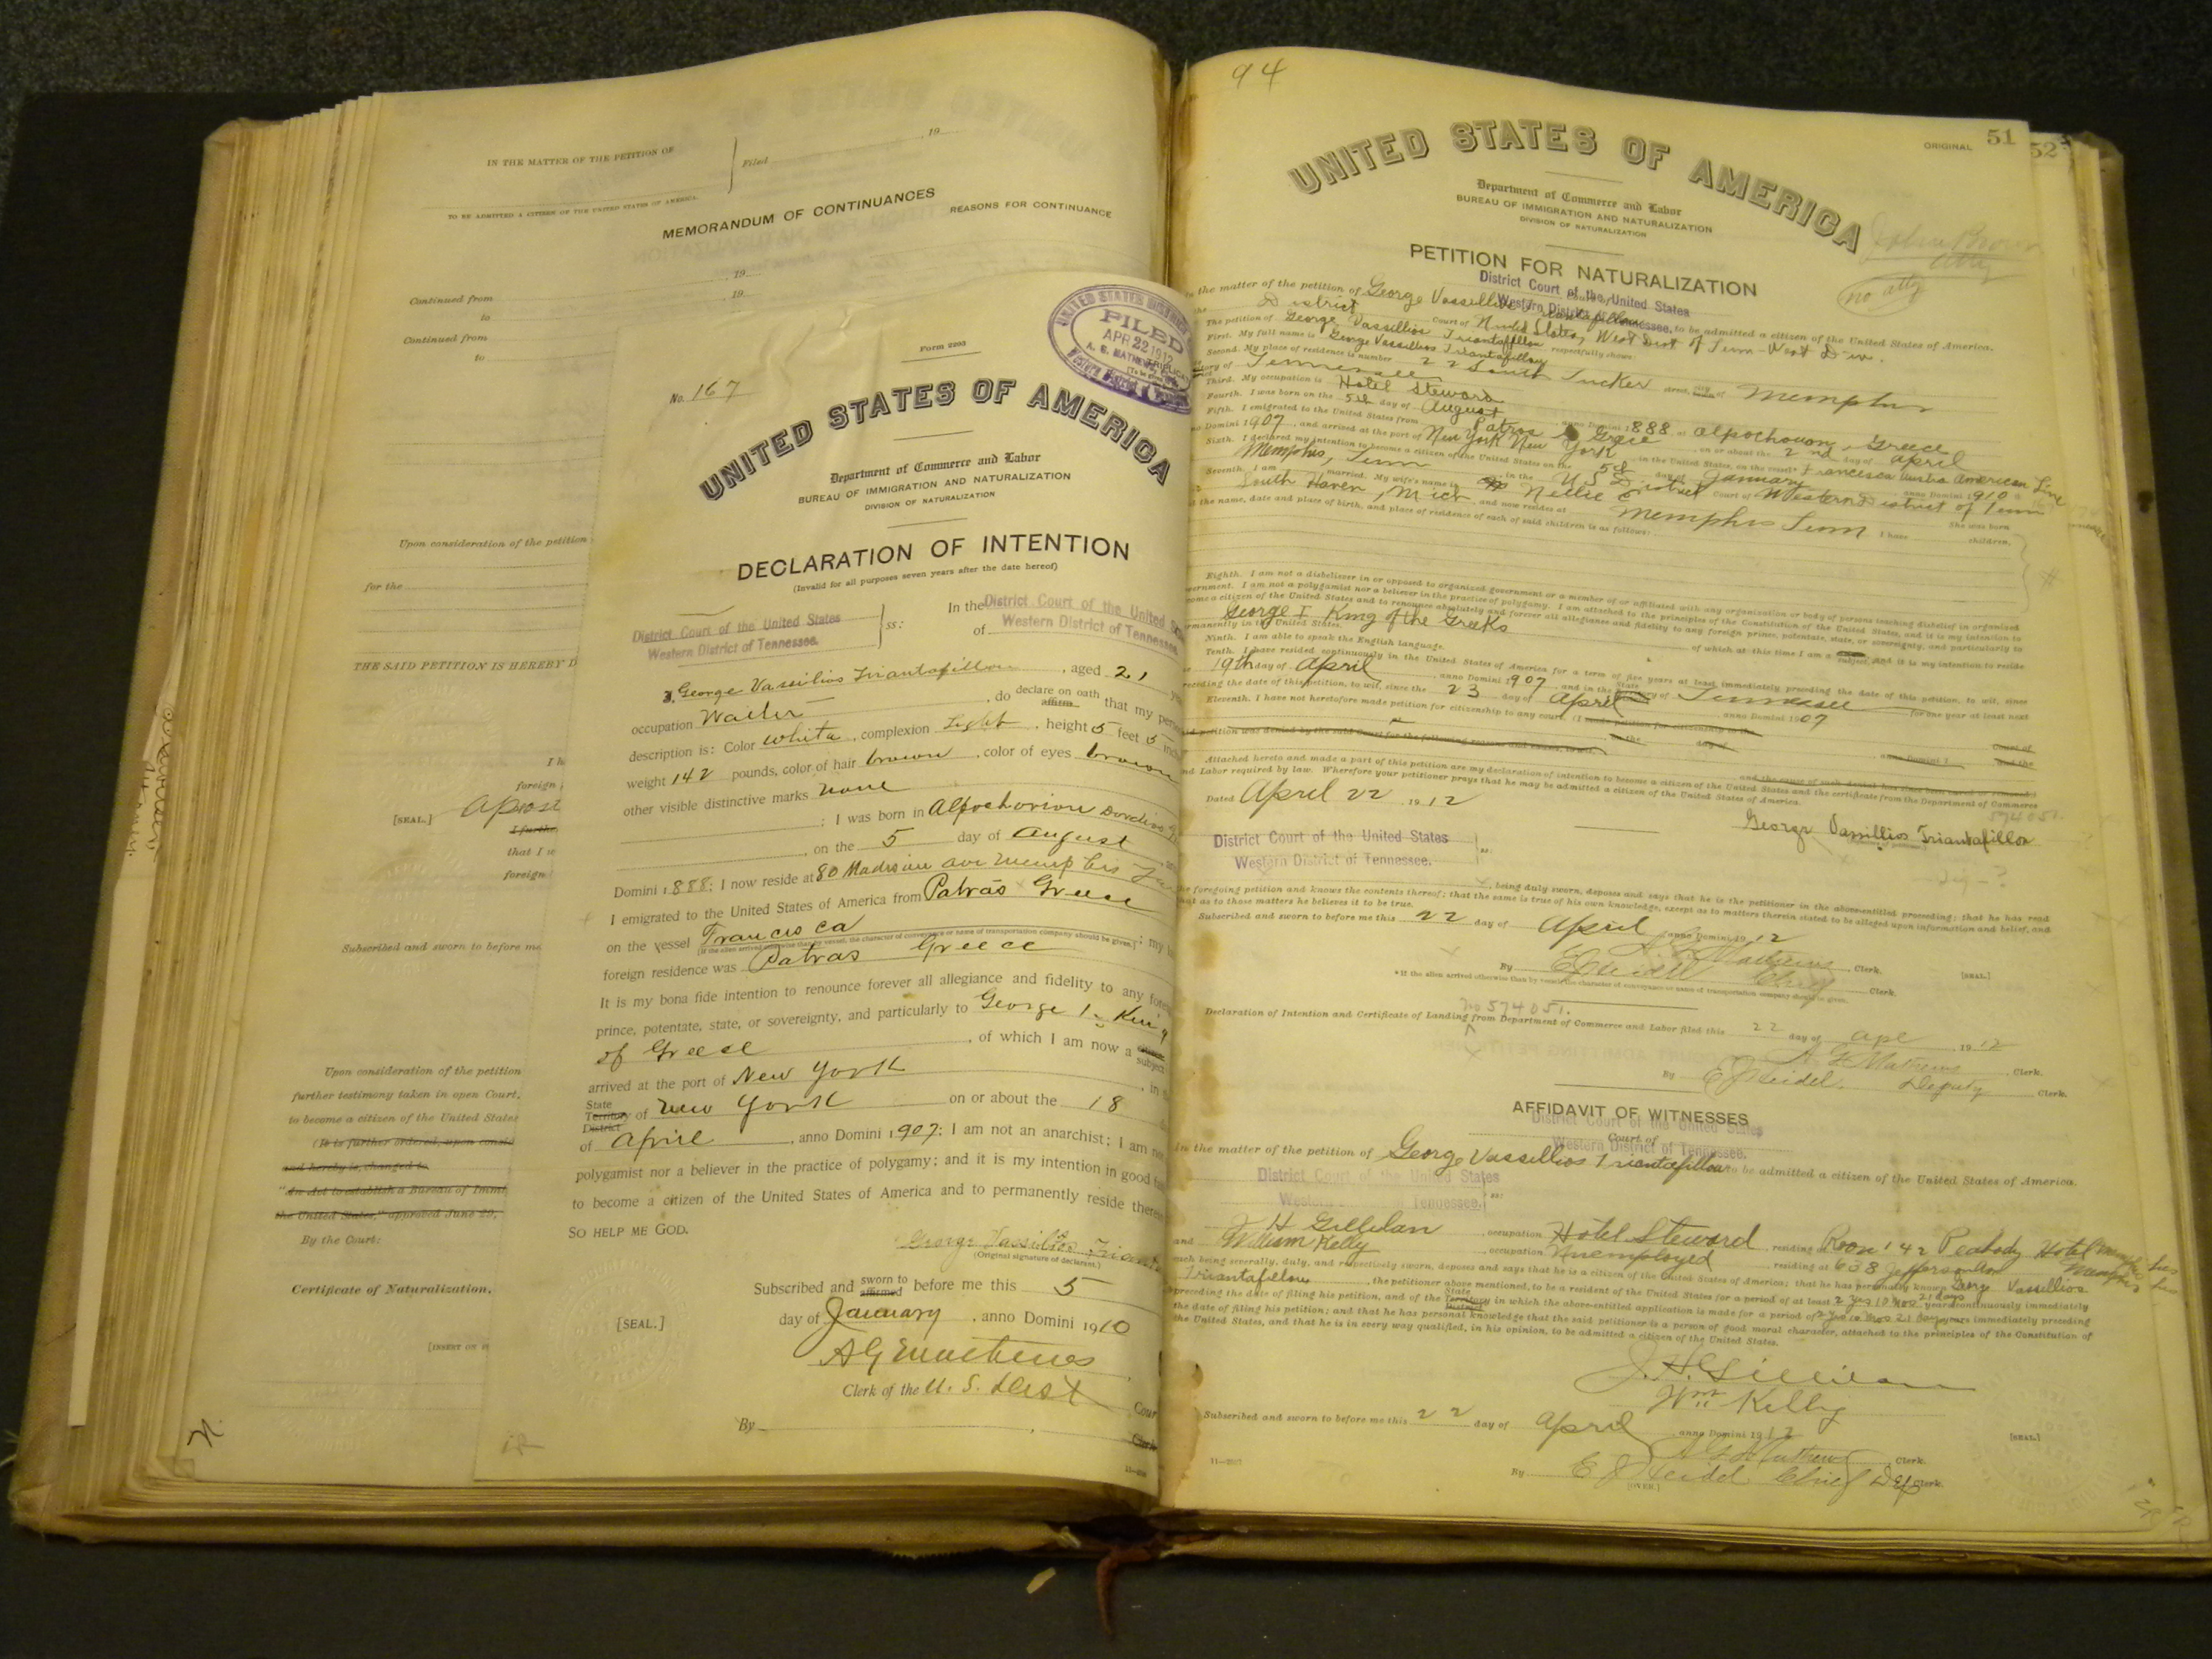 IN THE MATTER OF THE PETITION OF
Filed
, 19
TO BE ADMITTED A CITIZEN OF THE UNITED STATES OF AMERICA.
MEMORANDUM OF CONTINUANCES
REASONS FOR CONTINUANCE
Continued from
, 19
to
, 19
Continued from
to
Upon consideration of the petition
for the
THE SAID PETITION IS HEREBY D
foreign
[SEAL.]
I furthe
that I
foreign
Subscribed and sworn to before me
Upon consideration of the petition
further testimony taken in open Court,
to become a citizen of the United States
(It is further ordered, upon consid
and hereby is, changed to
"An Act to establish a Bureau of Immi
the United States," approved June 29,
By the Court:
Certificate of Naturalization,
Form 2203
No. 167
UNITED STATES
FILED
APR 22 1912
UNITED STATES OF AMERICA
Department of Commerce and Labor
BUREAU OF IMMIGRATION AND NATURALIZATION
DIVISION OF NATURALIZATION
DECLARATION OF INTENTION
(Invalid for all purposes seven years after the date hereof)
District Court of the United States
Western District of Tennessee.
ss:
In the District Court of the United
of Western District of Tennessee
I, George Vassilios Triantafillou, aged 21
occupation Waiter, do declare on oath affirm that my
description is: Color white, complexion Light, height 5 feet 5
weight 142 pounds, color of hair brown, color of eyes brown
other visible distinctive marks none
; I was born in Alpochorion
, on the 5 day of August
Domini 1888; I now reside at 80 Madison ave Memphis
I emigrated to the United States of America from Patras Greece
on the vessel Francisca ; my
(If the alien arrived otherwise than by vessel, the character of conveyance or name of transportation company should be given.)
foreign residence was Patras Greece
It is my bona fide intention to renounce forever all allegiance and fidelity to any
prince, potentate, state, or sovereignty, and particularly to George 1st King
of Greece, of which I am now a subject
arrived at the port of New York, in
State Territory District of New York on or about the 18
of April, anno Domini 1907; I am not an anarchist; I am
polygamist nor a believer in the practice of polygamy; and it is my intention in good
to become a citizen of the United States of America and to permanently reside
SO HELP ME GOD.
George Vassilios
(Original signature of declarant.)
Subscribed and sworn to affirmed before me this 5
[SEAL.]
day of January, anno Domini 1910
A G Mathews
Clerk of the U. S. Dist Cour
By
94
ORIGINAL 51
52
UNITED STATES OF AMERICA
Department of Commerce and Labor
BUREAU OF IMMIGRATION AND NATURALIZATION
DIVISION OF NATURALIZATION
no atty
PETITION FOR NATURALIZATION
District Court of the United States
Western District of Tennessee.
In the matter of the petition of George Vassillios Triantafillou, to be admitted a citizen of the United States of America.
District Court of United States, West Dist of Tenn West Div.
The petition of George Vassillios Triantafillou, respectfully shows:
First. My full name is George Vassillios Triantafillou
Second. My place of residence is number 22 South Tucker street, city of Memphis
Tennessee
Third. My occupation is Hotel Steward
Fourth. I was born on the 5th day of August, anno Domini 1888, at Alpochouon, Greece
Fifth. I emigrated to the United States from Patras Greece, on or about the 2nd day of April
Domini 1907, and arrived at the port of New York New York, in the United States, on the vessel Francesca Austro American Line
Sixth. I declared my intention to become a citizen of the United States on the 5th day of January, anno Domini 1910
Memphis, Tenn, in the U S District Court of Western District of Tenn
Seventh. I am married. My wife's name is Nellie E. She was born
South Haven, Mich, and now resides at Memphis Tenn. I have children,
the name, date and place of birth, and place of residence of each of said children is as follows:
Eighth. I am not a disbeliever in or opposed to organized government or a member of or affiliated with any organization or body of persons teaching disbelief in organized
government. I am not a polygamist nor a believer in the practice of polygamy. I am attached to the principles of the Constitution of the United States, and it is my intention to
become a citizen of the United States and to renounce absolutely and forever all allegiance and fidelity to any foreign prince, potentate, state, or sovereignty, and particularly to
George I King of the Greeks, of which at this time I am a subject, and it is my intention to reside
permanently in the United States.
Ninth. I am able to speak the English language.
Tenth. I have resided continuously in the United States of America for a term of five years at least immediately preceding the date of this petition, to wit, since
19th day of April, anno Domini 1907, and in the State Territory of Tennessee for one year at least next
preceding the date of this petition, to wit, since the 23 day of April, anno Domini 1907
Eleventh. I have not heretofore made petition for citizenship to any court. (I made petition for citizenship to the
petition was denied by the said Court for the following reasons and causes, to wit,
Attached hereto and made a part of this petition are my declaration of intention to become a citizen of the United States and the certificate from the Department of Commerce
and Labor required by law. Wherefore your petitioner prays that he may be admitted a citizen of the United States of America.
Dated April 22, 1912
574051.
George Vassillios Triantafillou
District Court of the United States
Western District of Tennessee.
ss:
, being duly sworn, deposes and says that he is the petitioner in the above-entitled proceeding; that he has read
the foregoing petition and knows the contents thereof; that the same is true of his own knowledge, except as to matters therein stated to be alleged upon information and belief, and
that as to those matters he believes it to be true.
Subscribed and sworn to before me this 22 day of April, anno Domini 1912
A G Mathews, Clerk.
[SEAL.]
By E J Heidel Chief Clerk.
* If the alien arrived otherwise than by vessel, the character of conveyance or name of transportation company should be given.
no 574051.
Declaration of Intention and Certificate of Landing from Department of Commerce and Labor filed this 22 day of Apl, 1912
A G Mathews, Clerk.
By E J Heidel. Deputy Clerk.
AFFIDAVIT OF WITNESSES
District Court of the United States
Court of
Western District of Tennessee.
In the matter of the petition of George Vassillios Triantafillou to be admitted a citizen of the United States of America.
District Court of the United States
Western Tennessee.
ss:
J H Gillilan, occupation Hotel Steward, residing at Room 142 Peabody Hotel Memphis
and William Kelly, occupation Unemployed, residing at 638 Jefferson Ave Memphis
each being severally, duly, and respectively sworn, deposes and says that he is a citizen of the United States of America; that he has personally known George Vassillios
Triantafillou, the petitioner above mentioned, to be a resident of the United States for a period of at least 2 yrs 10 mos 21 days years continuously immediately
preceding the date of filing his petition, and of the State Territory District in which the above-entitled application is made for a period of 2 yrs 10 mos 21 days years immediately preceding
the date of filing his petition; and that he has personal knowledge that the said petitioner is a person of good moral character, attached to the principles of the Constitution of
the United States, and that he is in every way qualified, in his opinion, to be admitted a citizen of the United States.
J. H. Gillilan
Wm Kelly
Subscribed and sworn to before me this 22 day of April, anno Domini 1912
[SEAL.]
A G Mathews Clerk.
By E J Heidel Chief Dep Clerk.
[OVER.]